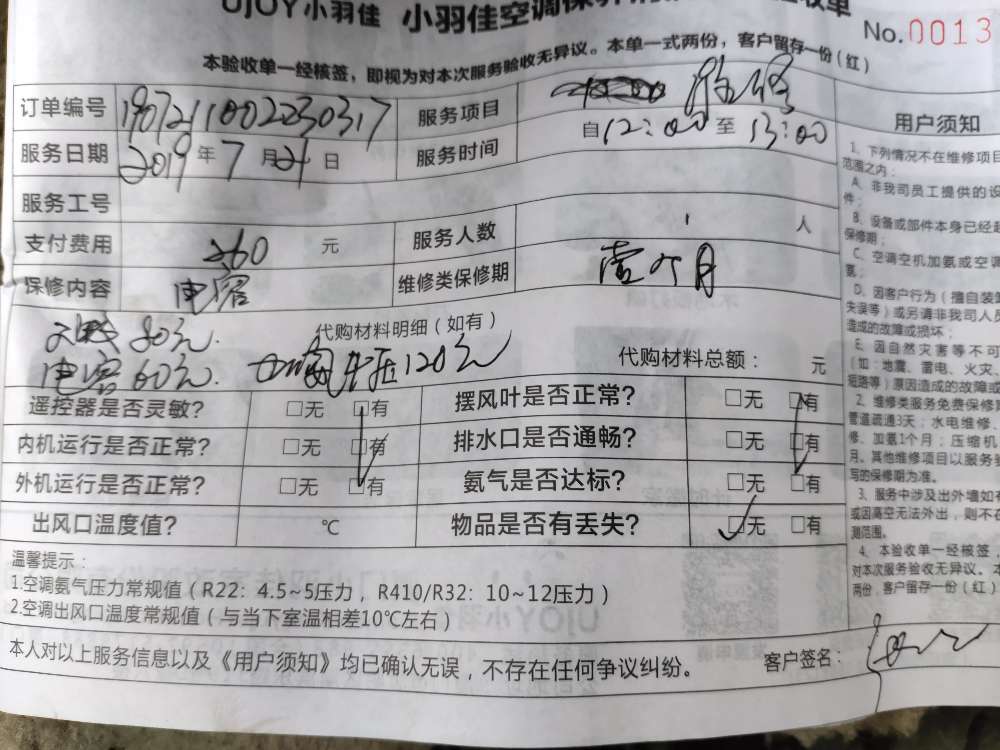 UJOY小羽佳 小羽佳空调保养
收单
No.0013
本验收单一经核签，即视为对本次服务验收无异议。本单一式两份，客户留存一份(红)
订单编号 190721100223031７ 服务项目
服务日期 2019年7月21日 服务时间 自12:00至13:00
服务工号
支付费用 260元 服务人数 1人
保修内容 电容 维修类保修期 壹个月
代购材料明细（如有）
80元.
电容60元. 120元 代购材料总额： 元
遥控器是否灵敏? □无 □有 摆风叶是否正常? □无 □有
内机运行是否正常? □无 □有 排水口是否通畅? □无 □有
外机运行是否正常? □无 □有 氨气是否达标? □无 □有
出风口温度值? ℃ 物品是否有丢失? □无 □有
温馨提示：
1.空调氨气压力常规值（R22: 4.5~5压力，R410/R32: 10~12压力）
2.空调出风口温度常规值（与当下室温相差10℃左右）
本人对以上服务信息以及《用户须知》均已确认无误，不存在任何争议纠纷。 客户签名：
用户须知
1、下列情况不在维修项目
范围之内：
A、非我司员工提供的设
件；
B、设备或部件本身已经超
保修期；
C、空调空机加氨或空调
氨；
D、因客户行为（擅自装
失误等）或另请非我司人员
造成的故障或损坏；
E、因自然灾害等不可
（如：地震、蓄电、火灾、
短路等）原因造成的故障或
2、维修类服务免费保修
管道疏通3天；水电维修、
修、加氨1个月；压缩机
月。其他维修项目以服务
写的保修期为准。
3、服务中涉及出外墙如有
或因高空无法外出，则不在
测范围。
4、本验收单一经核签，
对本次服务验收无异议。本
两份，客户留存一份（红）